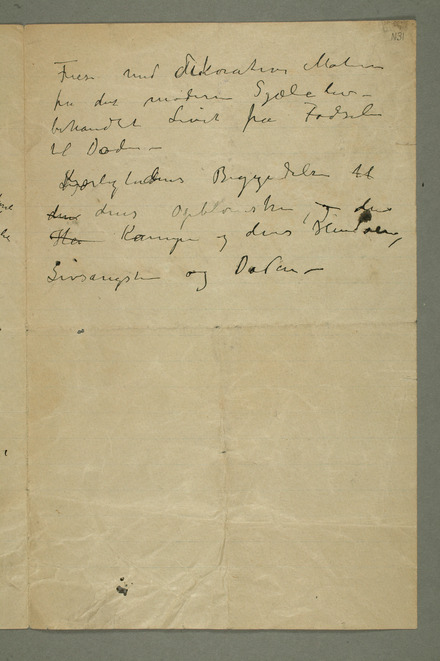 N31
Frise med dekorative Motiver
fra det moderne Sjæleliv –
behandlet Livet fra Fødselen
til Døden –
Kjærlighedens Begyndelse til
den dens Opblomstren og den
Kampe og dens
Livsangsten og Døden –